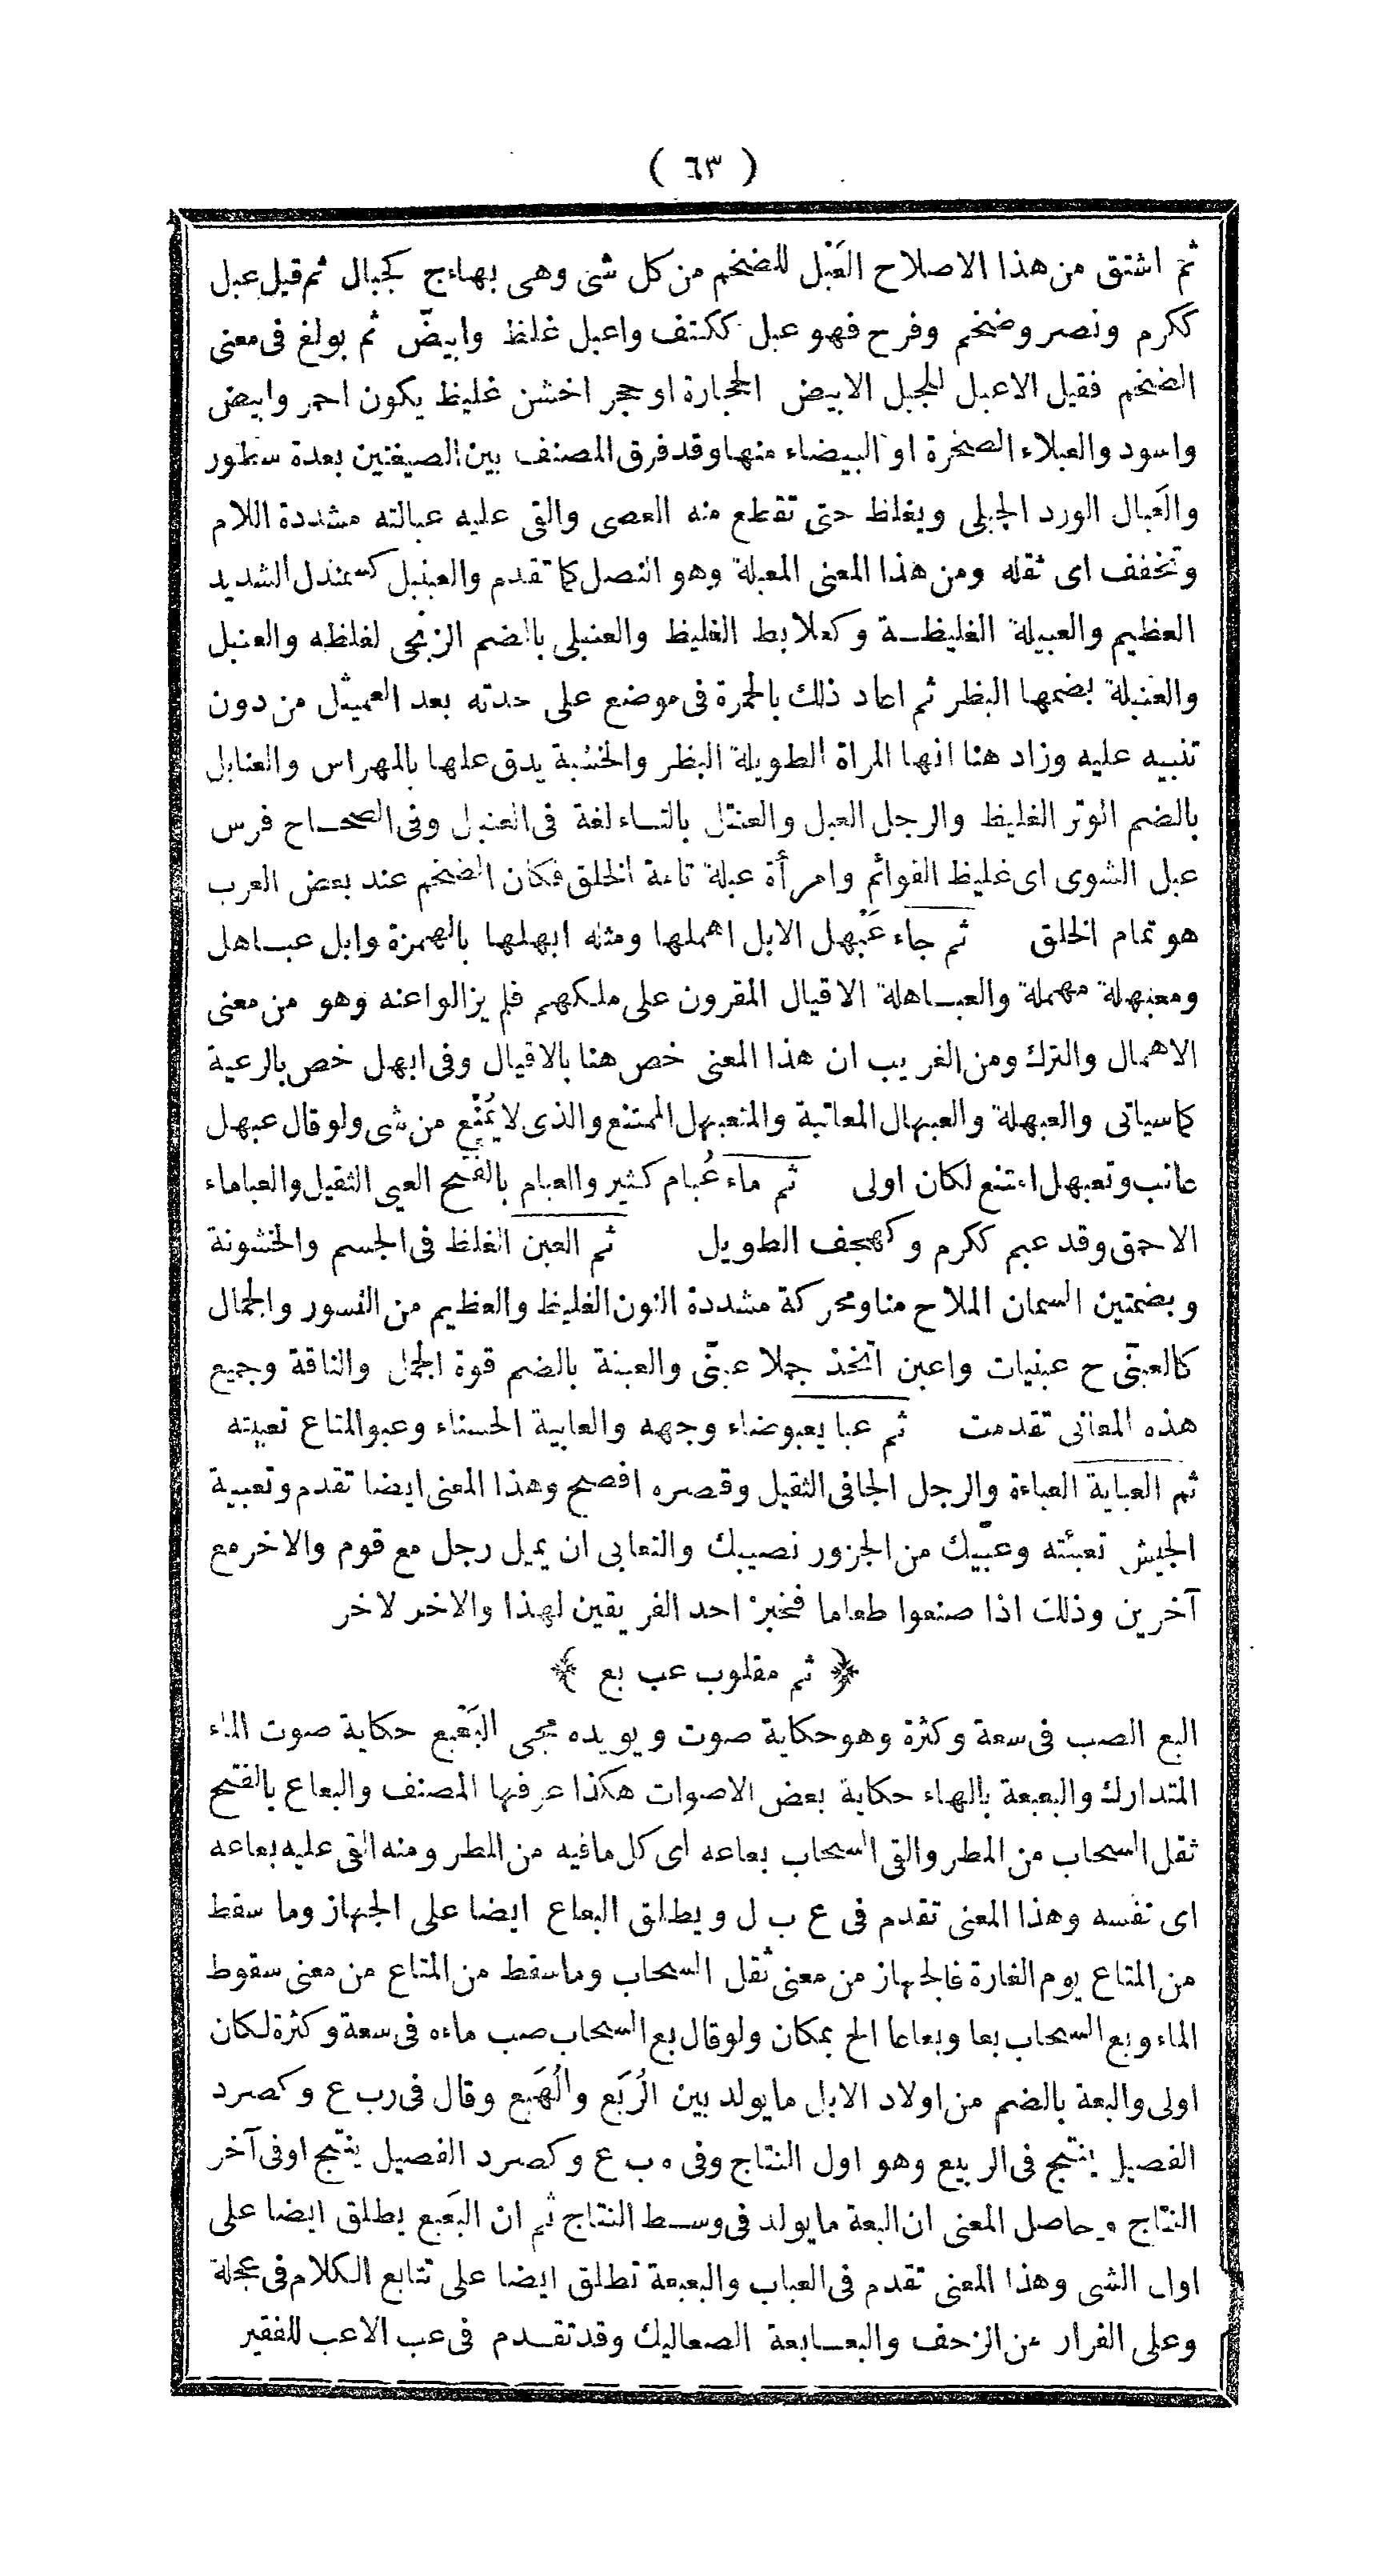 ( ٦٣ )
ثم اشتق من هذا الاصلاح العَبْل للضخم من كل شئ وهى بهاءج كجبال ثم قيل عبل
ككرم ونصر وضخم وفرح فهو عبل ككتف واعبل غلظ وابيضّ ثم بولغ فى معنى
الضخم فقيل الاعبل للجبل الابيض الحجارة او حجر اخشن غليظ يكون احمر وابيض
واسود والعبلاء الصخرة او البيضاء منها وقد فرق المصنف بين الصيغتين بعدة سطور
والعَبال الورد الجبلى ويغلظ حتى تقطع منه العصى والقى عليه عبالته مشددة اللام
وتخفف اى ثقله ومن هذا المعنى المعبلة وهو النصل كما تقدم والعبنبل كسمندل الشديد
العظيم والعبيلة الغليظـة وكعلابط الغليظ والعنبلى بالضم الزنجى لغلظه والعنبل
والعنبلة بضمها البظر ثم اعاد ذلك بالحمرة فى موضع على حدته بعد العميثل من دون
تنبيه عليه وزاد هنا انها المراة الطويلة البظر والخشبة يدق علها بالمهراس والعنابل
بالضم الوتر الغليظ والرجل العبل والعنتل بالتـاء لغة فى العنبل وفى الصحـاح فرس
عبل الشوى اى غليظ القوائم وامرأة عبلة تامة الخلق فكان الضخم عند بعض العرب
هو تمام الخلق ثم جاء عَبْهل الابل اهملها ومثله ابهلها بالهمزة وابل عبـاهل
ومعبهلة مهملة والعبـاهلة الاقيال المقرون على ملكهم فلم يزالوا عنه وهو من معنى
الاهمال والترك ومن الغريب ان هذا المعنى خص هنا بالاقيال وفى ابهل خص بالرعية
كما سياتى والعبهلة والعبهال المعاتبة والمتعبهل الممتنع والذى لا يُمْنَع من شى ولو قال عبهل
عاتب وتعبهل امتنع لكان اولى ثم ماء عُبام كثير والعبام بالفتح العيى الثقيل والعباماء
الاحمق وقد عبم ككرم وكهجف الطويل ثم العبن الغلظ فى الجسم والخشونة
وبضمتين السمان الملاح منا ومحركة مشددة النون الغليظ والعظيم من النسور والجمال
كالعبنّى ح عبنيات واعبن اتخذ جملا عبنّى والعبنة بالضم قوة الجمل والناقة وجميع
هذه المعانى تقدمت ثم عبا يعبو ضاء وجهه والعابية الحسناء وعبو المتاع تعبيته
ثم العباية العباءة والرجل الجافى الثقيل وقصره افصح وهذا المعنى ايضا تقدم وتعبية
الجيش تعبئته وعبّيك من الجزور نصيبك والتعابى ان يميل رجل مع قوم والاخر مع
آخرين وذلك اذا صنعوا طعاما فخبز احد الفريقين لهذا والاخر لاخر
﴿ ثم مقلوب عب بع ﴾
البع الصب فى سعة وكثرة وهو حكاية صوت ويويده مجى البَعْبع حكاية صوت الماء
المتدارك والبعبعة بالهاء حكاية بعض الاصوات هكذا عرفها المصنف والبعاع بالفتح
ثقل السحاب من المطر والقى السحاب بعاعه اى كل مافيه من المطر ومنه القى عليه بعاعه
اى نفسه وهذا المعنى تقدم فى ع ب ل ويطلق البعاع ايضا على الجهاز وما سقط
من المتاع يوم الغارة فالجهاز من معنى ثقل السحاب وما سقط من المتاع من معنى سقوط
الماء وبع السحاب بعا وبعاعا الح بمكان ولو قال بع السحاب صب ماءه فى سعة وكثرة لكان
اولى والبعة بالضم من اولاد الابل ما يولد بين الرُبَع والهُبَع وقال فى رب ع وكصرد
الفصيل ينتج فى الربيع وهو اول النتاج وفى ه ب ع وكصرد الفصيل ينتج او فى آخر
النتاج وحاصل المعنى ان البعة ما يولد فى وسـط النتاج ثم ان البَعبع يطلق ايضا على
اول الشى وهذا المعنى تقدم فى العباب والبعبعة تطلق ايضا على تتابع الكلام فى عجلة
وعلى الفرار من الزحف والبعـابعة الصعاليك وقد تقـدم فى عب الاعب للفقير